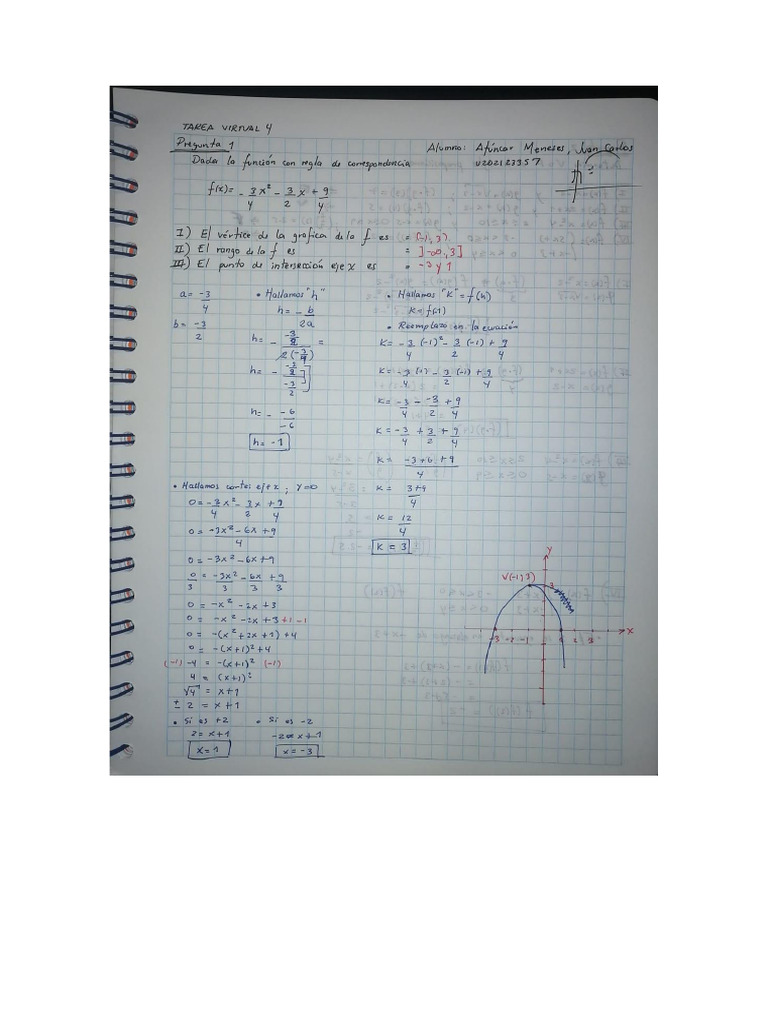 TAREA VIRTUAL 4
Pregunta 1
Alumno: Afúncar Meneses, Juan Carlos
Dada la función con regla de correspondencia
U202123357
f(x)= -3/4 x² - 3/2 x + 9/4
I) El vértice de la grafica de la f es = (-1,3)
II) El rango de la f es = ]-∞,3]
III) El punto de intersección eje x es = -3 y 1
a = -3/4
b = -3/2
• Hallamos "h"
h = - b/2a
h = - (-3/2)/(2(-3/4)) =
h = - (-3/2)/(-3/2)]
h = - -6/-6
h = -1
• Hallamos "K" = f(h)
K = f(-1)
• Reemplazo en la ecuación
K = -3/4 (-1)² - 3/2 (-1) + 9/4
K = -3/4 (1) - 3/2 (-1) + 9/4
K = -3/4 - -3/2 + 9/4
K = -3/4 + 3/2 + 9/4
K = -3+6+9/4
K = 3+9/4
K = 12/4
K = 3
• Hallamos cortes eje x ; Y=0
0 = -3/4 x² - 3/2 x + 9/4
0 = -3x² - 6x + 9/4
0 = -3x² - 6x + 9
0/3 = -3x²/3 - 6x/3 + 9/3
0 = -x² - 2x + 3
0 = -x² - 2x + 3 +1 -1
0 = -(x² + 2x + 1) + 4
0 = -(x+1)² + 4
(-1) -4 = -(x+1)² (-1)
4 = (x+1)²
√4 = x+1
± 2 = x+1
• Si es +2
2 = x+1
x = 1
• Si es -2
-2 = x+1
x = -3
Y
V(-1,3)
3
-3 -2 -1 1 2 3
X